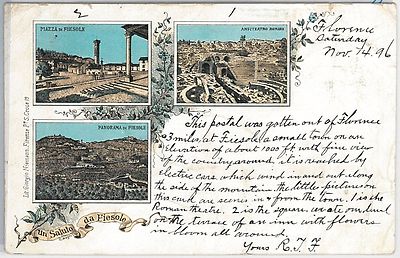 2
1
Florence
Saturday
Nov. 14. 96
PIAZZA DI FIESOLE
ANFITEATRO ROMANO
PANORAMA DI FIESOLE
un Saluto da Fiesole
This postal was gotten out of Florence
3 miles, at Fiesole a small town on an
elevation of about 1000 ft with fine view
of the country around. it is reached by
electric cars which wind in and out along
the side of the mountain. the little pictures on
this card are scenes in & from the town. 1 is the
Roman theatre. 2 is the square. we ate our lunch
on the terrace of an inn with flowers
in bloom all around.
Yours R. F. F